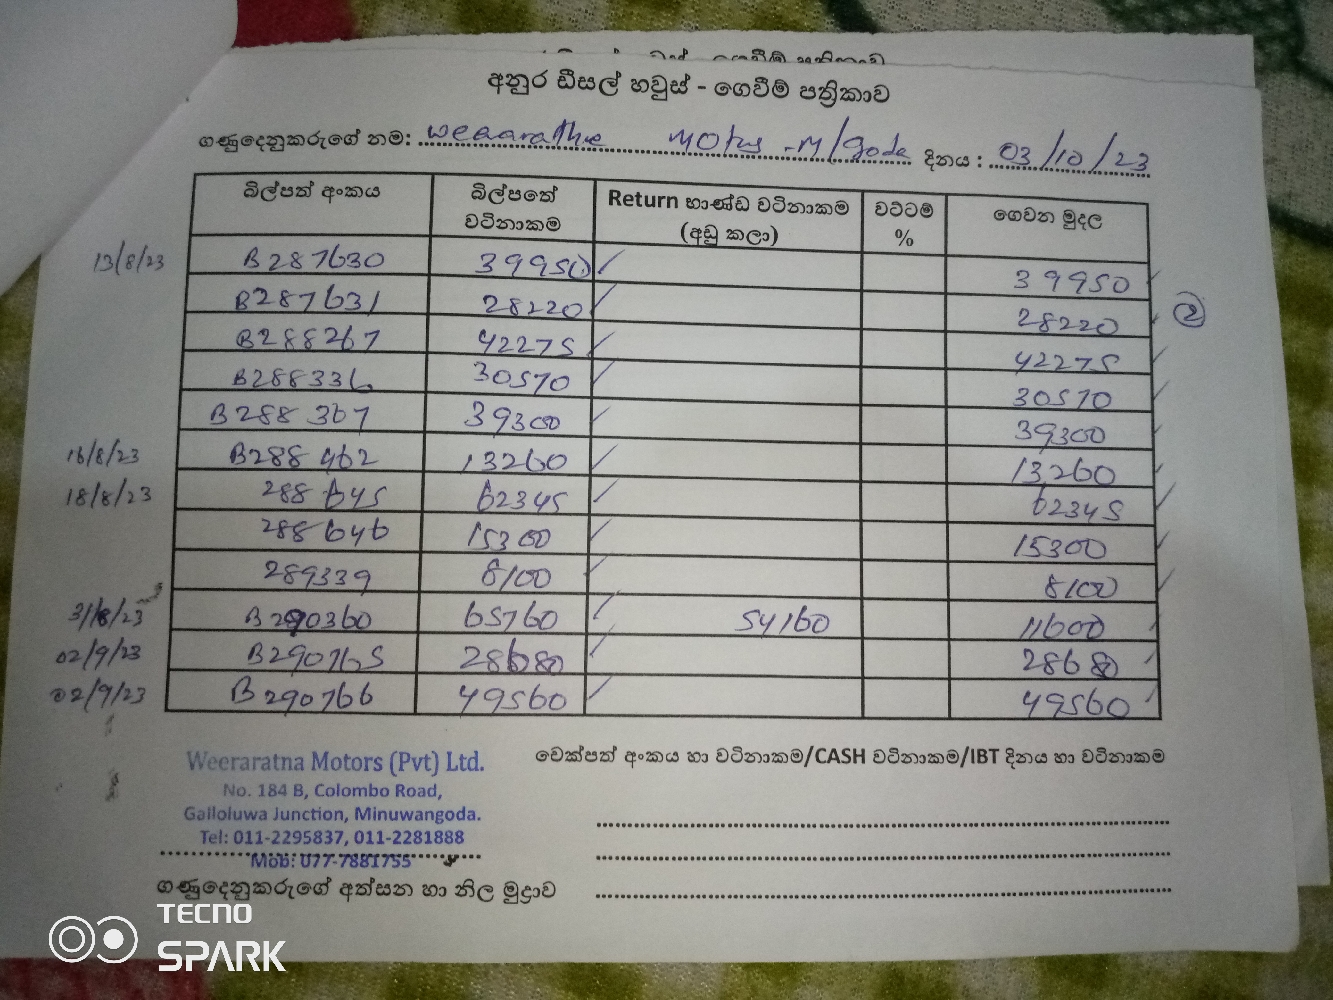 අනුර ඩීසල් හවුස් - ගෙවීම් පත්‍රිකාව
ගණුදෙනුකරුගේ නම: weaarathe Motus -M/goda දිනය : 03/10/23
බිල්පත් අංකය බිල්පතේ වටිනාකම Return භාණ්ඩ වටිනාකම (අඩු කලා) වට්ටම් % ගෙවන මුදල
13/8/23 B287630 39950 39950
B287631 28220 28220 2
B288267 42275 42275
B288336 30570 30570
B288367 39300 39300
16/8/23 B288462 13260 13260
18/8/23 288645 62345 62345
288646 15300 15300
289339 8100 8100
31/8/23 B290360 65760 54160 11600
02/9/23 B290765 28680 28680
02/9/23 B290766 49560 49560
Weeraratna Motors (Pvt) Ltd.
No. 184 B, Colombo Road,
Galloluwa Junction, Minuwangoda.
Tel: 011-2295837, 011-2281888
Mob: 077-7881755
චෙක්පත් අංකය හා වටිනාකම/CASH වටිනාකම/IBT දිනය හා වටිනාකම
ගණුදෙනුකරුගේ අත්සන හා නිල මුද්‍රාව
TECNO
SPARK